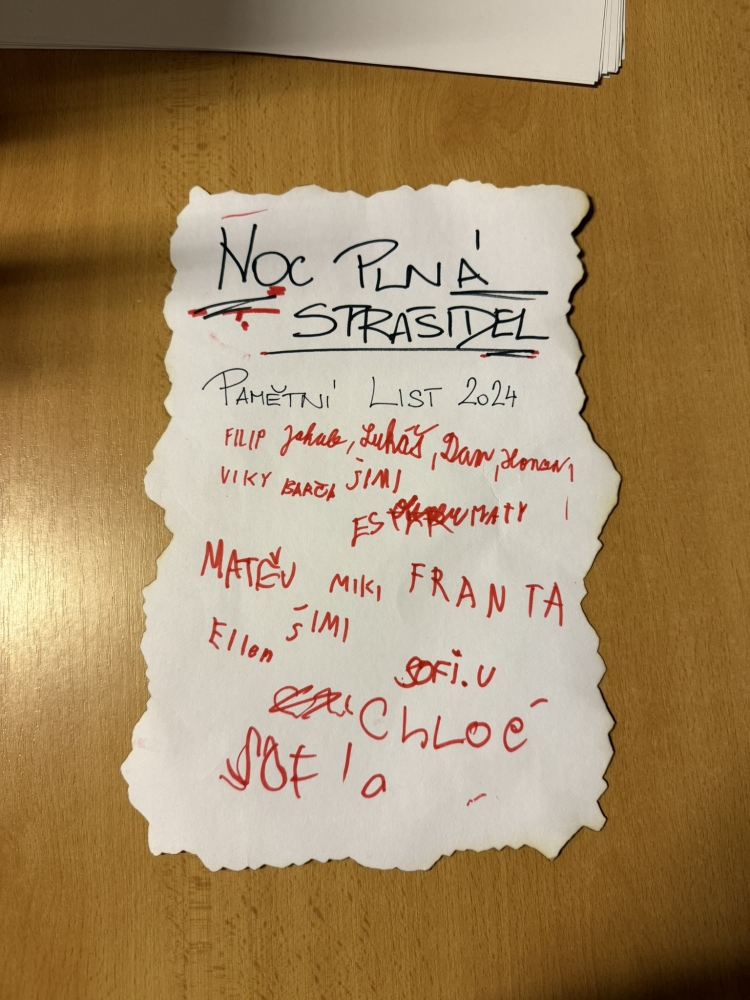 NOC PLNÁ
STRAŠIDEL
PAMĚTNÍ LIST 2024
FILIP Jakub, Lukáš, Dan, Honzan,
VIKY BARČA JIMI
ES MATY
MATĚJ MIKI FRANTA
Ellen ŠIMI
SOFi.U
ChLoé
SOFia